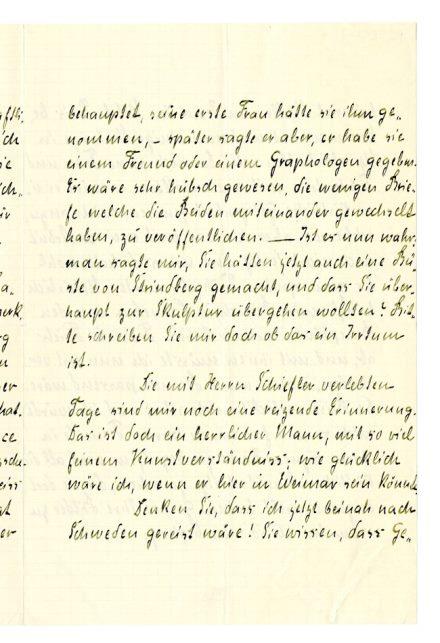 behauptet, seine erste Frau hätte sie ihm ge-
nommen, – später sagte er aber, er habe sie
einem Freund oder einem Graphologen gegeben.
Es wäre sehr hübsch gewesen, die wenigen Brie-
fe welche die Beiden miteinander gewechselt
haben, zu veröffentlichen. — Ist es nun wahr,
man sagte mir, Sie hätten jetzt auch eine Bü-
ste von Strindberg gemacht, und dass Sie über-
haupt zur Skulptur übergehen wollten? Bit-
te schreiben Sie mir doch ob das ein Irrtum
ist.
Die mit Herrn Schiefler verlebten
Tage sind mir noch eine reizende Erinnerung.
Das ist doch ein herrlicher Mann, mit so viel
feinem Kunstverständniss; wie glücklich
wäre ich, wenn er hier in Weimar sein könnte.
Denken Sie, dass ich jetzt beinah nach
Schweden gereist wäre! Sie wissen, dass Ge-